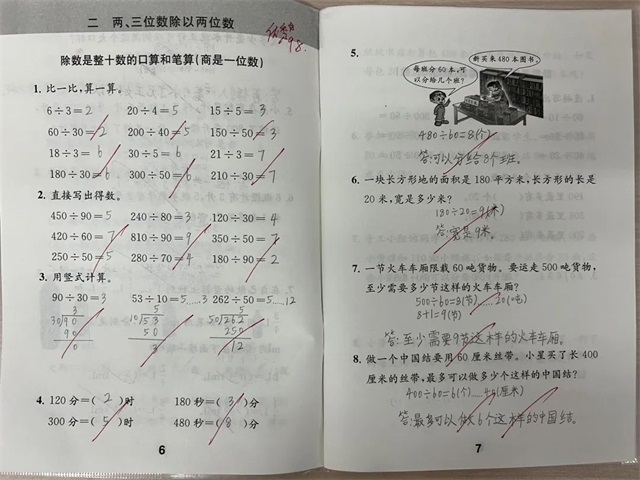 二 两、三位数除以两位数
98.
除数是整十数的口算和笔算(商是一位数)
1. 比一比,算一算。
6÷3=2 20÷4=5 15÷5=3
60÷30=2 200÷40=5 150÷50=3
18÷3=6 30÷5=6 21÷3=7
180÷30=6 300÷50=6 210÷30=7
2. 直接写出得数。
450÷90=5 240÷80=3 120÷30=4
420÷60=7 810÷90=9 350÷50=7
250÷50=5 280÷70=4 180÷90=2
3. 用竖式计算。
90÷30=3 53÷10=5……3 262÷50=5……12
3 5 5
30)90 10)53 50)262
90 50 250
0 3 12
4. 120分=(2)时 180秒=(3)分
300分=(5)时 480秒=(8)分
6
5.
每班分60本,可以分给几个班?
新买来480本图书。
480÷60=8(个)
答:可以分给8个班。
6. 一块长方形地的面积是180平方米,长方形的长是
20米,宽是多少米?
180÷20=9(米)
答:宽是9米。
7. 一节火车车厢限载60吨货物。要运走500吨货物,
至少需要多少节这样的火车车厢?
500÷60=8(节)……20(吨)
8+1=9(节)
答:至少需要9节这样的火车车厢。
8. 做一个中国结要用60厘米丝带。小星买了长400
厘米的丝带,最多可以做多少个这样的中国结?
400÷60=6(个)……40(厘米)
答:最多可以做6个这样的中国结。
7